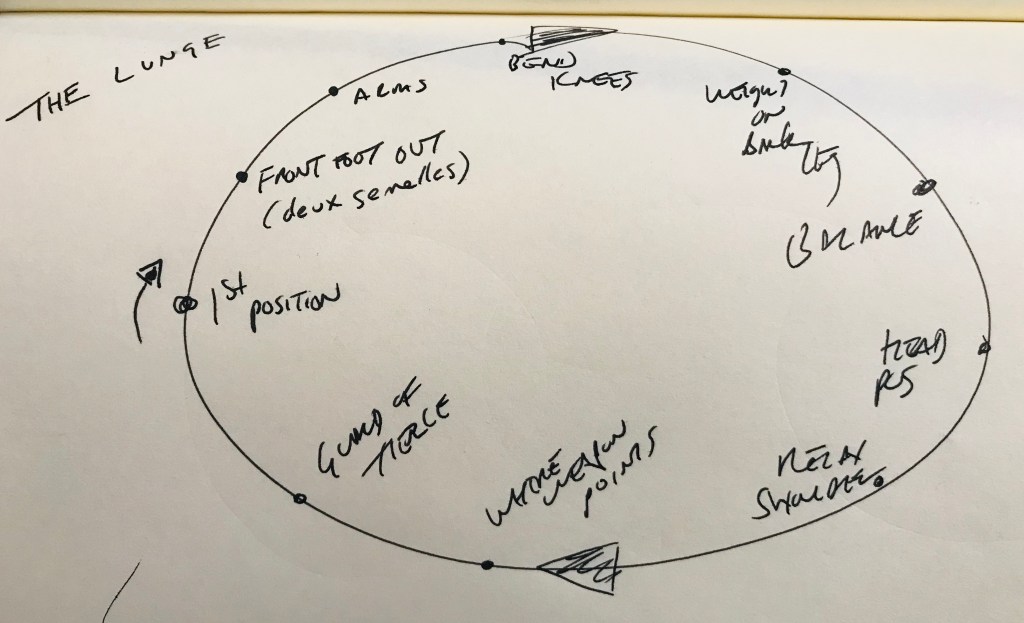 THE LUNGE
BEND
KNEES
ARMS
WEIGHT
ON
BACK
LEG
FRONT FOOT OUT
(deux semelles)
BALANCE
1st POSITION
HEAD
POS
GUARD OF
TIERCE
WHERE
WEAPON
POINTS
RELAX
SHOULDER